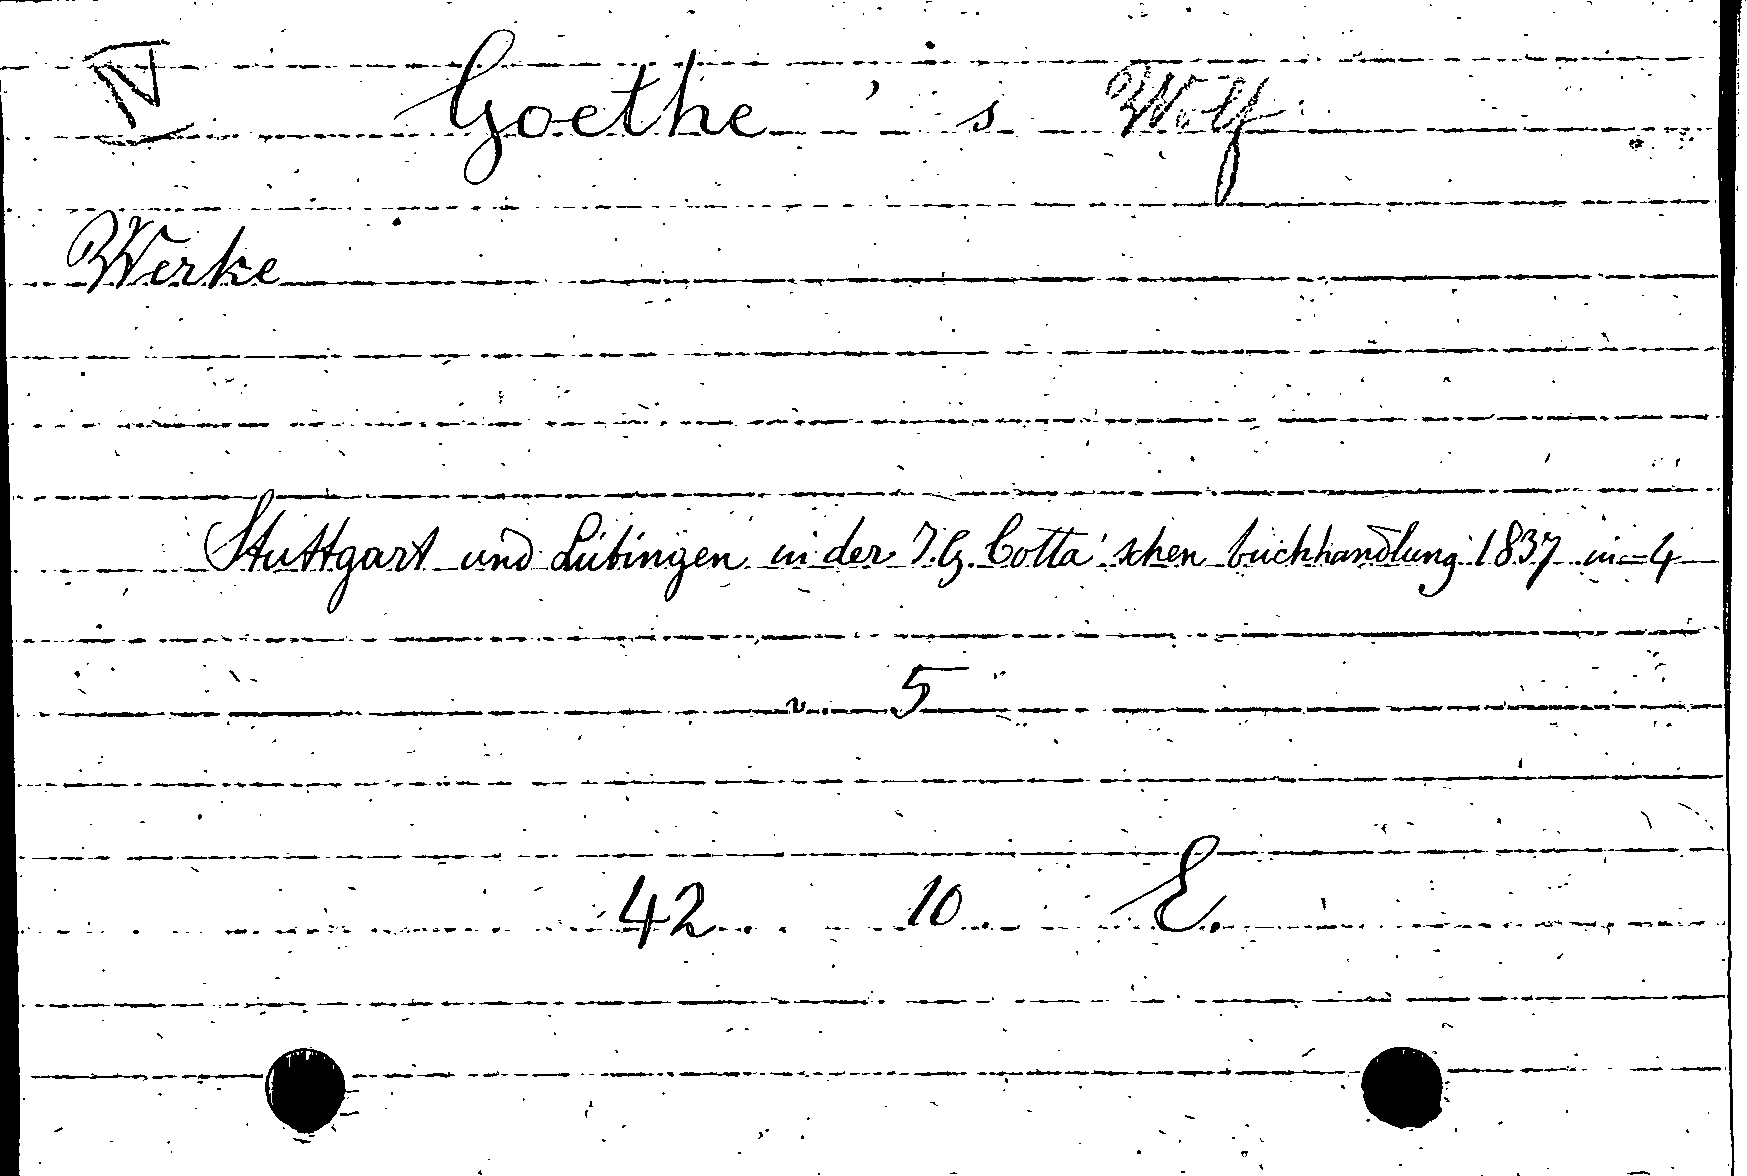 IV Goethe 's Wolf
Werke
Stuttgart und Lübingen in der J.G. Cotta'schen buchhandlung 1837 in-4
v. 5
42. 10. E.